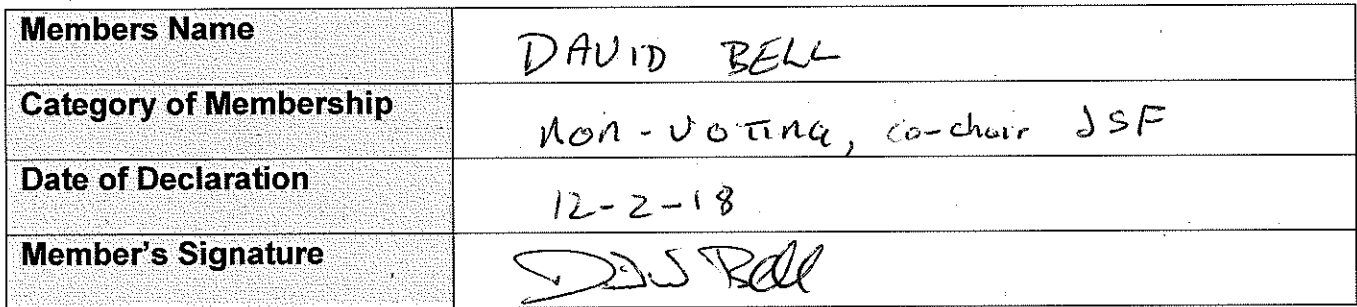 Members Name DAVID BELL
Category of Membership Non-Voting, co-chair JSF
Date of Declaration 12-2-18
Member's Signature David Bell